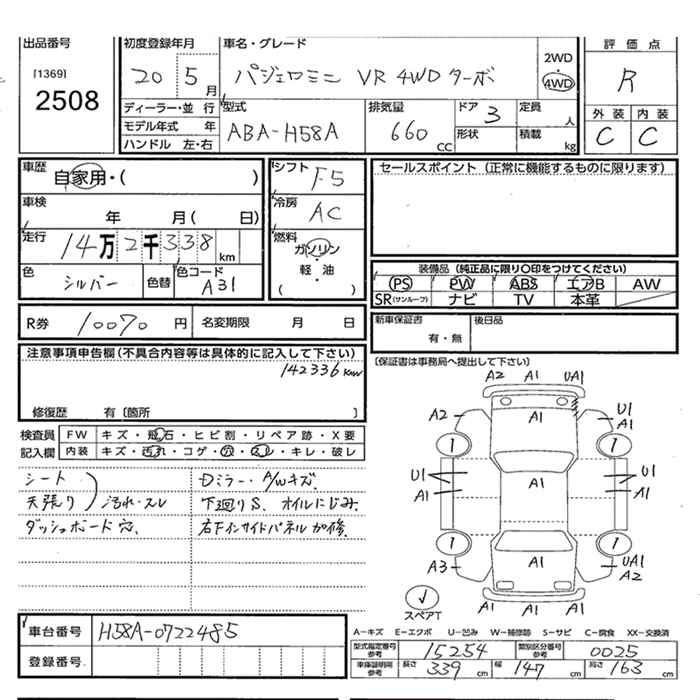 出品番号
[1369]
2508
初度登録年月
20 5月
車名・グレード
パジェロミニ VR 4WD ターボ
2WD
4WD
評価点
R
外装 内装
C C
ディーラー・並行
モデル年式 年
ハンドル 左・右
型式
ABA-H58A
排気量
660 cc
ドア 3
形状
定員 人
積載 kg
車歴
自家用・( )
車検
年 月( 日)
走行
14万2千338km
色
シルバー
色替
色コード
A31
シフト
F5
冷房
AC
燃料
ガソリン
軽・油
( )
セールスポイント (正常に機能するものに限ります)
装備品 (純正品に限り○印をつけてください)
PS PW ABS エアB AW
SR(サンルーフ) ナビ TV 本革
R券 10070円
名変期限 月 日
新車保証書
有・無
後日品
(保証書は事務局へ提出して下さい)
注意事項申告欄(不具合内容等は具体的に記入して下さい)
142336km
修復歴 有〔箇所 〕
検査員
記入欄
FW キズ・飛石・ヒビ割・リペア跡・X要
内装 キズ・汚れ・コゲ・穴・スレ・キレ・破レ
シート
天張り
汚れ・スレ
ダッシュボード穴、
Dミラー・A/Wキズ、
下廻りS、オイルにじみ、
右下インサイドパネル加修、
A2 A1 UA1
A2 A1 U1
A1
1 1
U1 U1
A1 A1 A1
1 1
A3 A1 UA1
A2
スペアT
A1 A1 A1
車台番号 H58A-0722485
登録番号
A-キズ E-エクボ U-凹み W-補修跡 S-サビ C-腐食 XX-交換済
型式指定番号
参考
15254
類別区分番号
参考
0025
車庫証明用
参考
長さ 339cm
幅 147cm
高さ 163cm